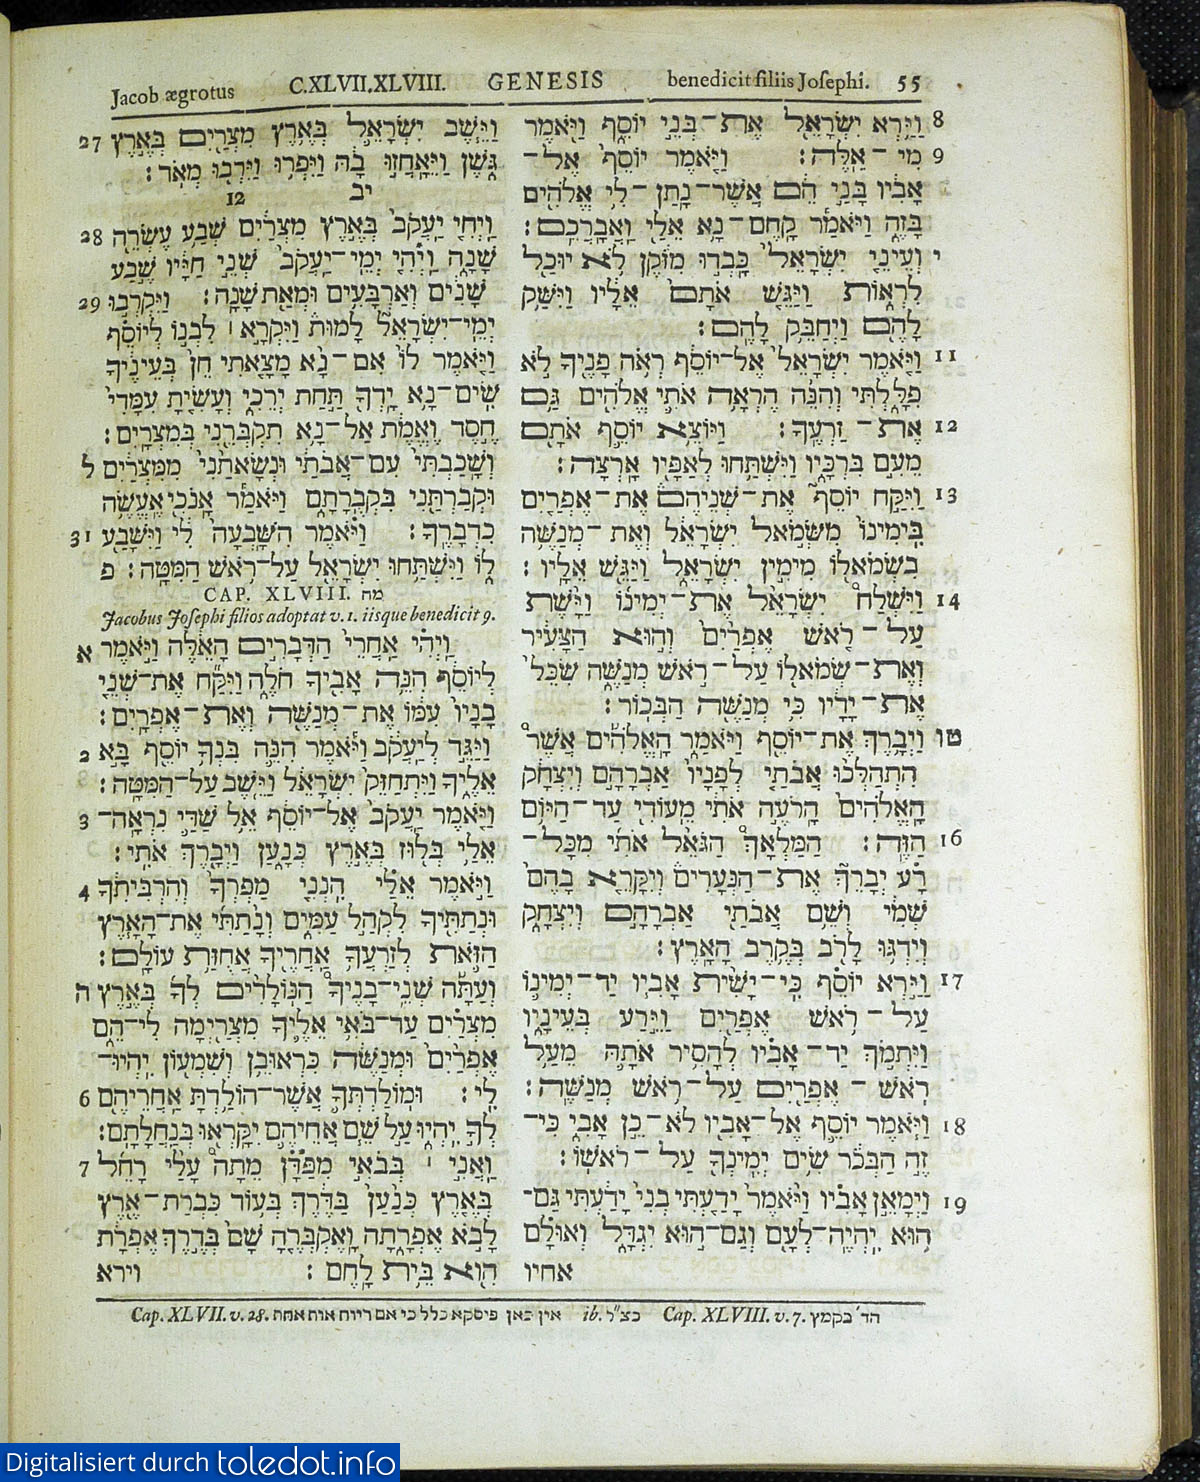 Jacob ægrotus C.XLVII.XLVIII. GENESIS benedicit filiis Josephi. 55
27 וַיֵּשֶׁב יִשְׂרָאֵל בְּאֶרֶץ מִצְרַיִם בְּאֶרֶץ
גֹּשֶׁן וַיֵּאָחֲזוּ בָהּ וַיִּפְרוּ וַיִּרְבּוּ מְאֹד׃
12 יב
28 וַיְחִי יַעֲקֹב בְּאֶרֶץ מִצְרַיִם שְׁבַע עֶשְׂרֵה
שָׁנָה וַיְהִי יְמֵי־יַעֲקֹב שְׁנֵי חַיָּיו שֶׁבַע
29 שָׁנִים וְאַרְבָּעִים וּמְאַת שָׁנָה׃ וַיִּקְרְבוּ
יְמֵי־יִשְׂרָאֵל לָמוּת וַיִּקְרָא ׀ לִבְנוֹ לְיוֹסֵף
וַיֹּאמֶר לוֹ אִם־נָא מָצָאתִי חֵן בְּעֵינֶיךָ
שִׂים־נָא יָדְךָ תַּחַת יְרֵכִי וְעָשִׂיתָ עִמָּדִי
חֶסֶד וֶאֱמֶת אַל־נָא תִקְבְּרֵנִי בְּמִצְרָיִם׃
ל וְשָׁכַבְתִּי עִם־אֲבֹתַי וּנְשָׂאתַנִי מִמִּצְרַיִם
וּקְבַרְתַּנִי בִּקְבֻרָתָם וַיֹּאמַר אָנֹכִי אֶעֱשֶׂה
31 כִדְבָרֶךָ׃ וַיֹּאמֶר הִשָּׁבְעָה לִי וַיִּשָּׁבַע
לוֹ וַיִּשְׁתַּחוּ יִשְׂרָאֵל עַל־רֹאשׁ הַמִּטָּה׃ פ
CAP. XLVIII. מח
Jacobus Josephi filios adoptat v. 1. iisque benedicit 9.
א וַיְהִי אַחֲרֵי הַדְּבָרִים הָאֵלֶּה וַיֹּאמֶר
לְיוֹסֵף הִנֵּה אָבִיךָ חֹלֶה וַיִּקַּח אֶת־שְׁנֵי
בָנָיו עִמּוֹ אֶת־מְנַשֶּׁה וְאֶת־אֶפְרָיִם׃
2 וַיַּגֵּד לְיַעֲקֹב וַיֹּאמֶר הִנֵּה בִּנְךָ יוֹסֵף בָּא
אֵלֶיךָ וַיִּתְחַזֵּק יִשְׂרָאֵל וַיֵּשֶׁב עַל־הַמִּטָּה׃
3 וַיֹּאמֶר יַעֲקֹב אֶל־יוֹסֵף אֵל שַׁדַּי נִרְאָה־
אֵלַי בְּלוּז בְּאֶרֶץ כְּנָעַן וַיְבָרֶךְ אֹתִי׃
4 וַיֹּאמֶר אֵלַי הִנְנִי מַפְרְךָ וְהִרְבִּיתִךָ
וּנְתַתִּיךָ לִקְהַל עַמִּים וְנָתַתִּי אֶת־הָאָרֶץ
הַזֹּאת לְזַרְעֲךָ אַחֲרֶיךָ אֲחֻזַּת עוֹלָם׃
ה וְעַתָּה שְׁנֵי־בָנֶיךָ הַנּוֹלָדִים לְךָ בְּאֶרֶץ
מִצְרַיִם עַד־בֹּאִי אֵלֶיךָ מִצְרַיְמָה לִי־הֵם
אֶפְרַיִם וּמְנַשֶּׁה כִּרְאוּבֵן וְשִׁמְעוֹן יִהְיוּ־
6 לִי׃ וּמוֹלַדְתְּךָ אֲשֶׁר־הוֹלַדְתָּ אַחֲרֵיהֶם
לְךָ יִהְיוּ עַל שֵׁם אֲחֵיהֶם יִקָּרְאוּ בְּנַחֲלָתָם׃
7 וַאֲנִי ׀ בְּבֹאִי מִפַּדָּן מֵתָה עָלַי רָחֵל
בְּאֶרֶץ כְּנַעַן בַּדֶּרֶךְ בְּעוֹד כִּבְרַת־אֶרֶץ
לָבֹא אֶפְרָתָה וָאֶקְבְּרֶהָ שָּׁם בְּדֶרֶךְ אֶפְרָת
הִוא בֵּית לָחֶם׃ וירא
8 וַיַּרְא יִשְׂרָאֵל אֶת־בְּנֵי יוֹסֵף וַיֹּאמֶר
9 מִי־אֵלֶּה׃ וַיֹּאמֶר יוֹסֵף אֶל־
אָבִיו בָּנַי הֵם אֲשֶׁר־נָתַן־לִי אֱלֹהִים
בָּזֶה וַיֹּאמַר קָחֶם־נָא אֵלַי וַאֲבָרֲכֵם׃
י וְעֵינֵי יִשְׂרָאֵל כָּבְדוּ מִזֹּקֶן לֹא יוּכַל
לִרְאוֹת וַיַּגֵּשׁ אֹתָם אֵלָיו וַיִּשַּׁק
לָהֶם וַיְחַבֵּק לָהֶם׃
11 וַיֹּאמֶר יִשְׂרָאֵל אֶל־יוֹסֵף רְאֹה פָנֶיךָ לֹא
פִלָּלְתִּי וְהִנֵּה הֶרְאָה אֹתִי אֱלֹהִים גַּם
12 אֶת־זַרְעֶךָ׃ וַיּוֹצֵא יוֹסֵף אֹתָם
מֵעִם בִּרְכָּיו וַיִּשְׁתַּחוּ לְאַפָּיו אָרְצָה׃
13 וַיִּקַּח יוֹסֵף אֶת־שְׁנֵיהֶם אֶת־אֶפְרַיִם
בִּימִינוֹ מִשְּׂמֹאל יִשְׂרָאֵל וְאֶת־מְנַשֶּׁה
בִשְׂמֹאלוֹ מִימִין יִשְׂרָאֵל וַיַּגֵּשׁ אֵלָיו׃
14 וַיִּשְׁלַח יִשְׂרָאֵל אֶת־יְמִינוֹ וַיָּשֶׁת
עַל־רֹאשׁ אֶפְרַיִם וְהוּא הַצָּעִיר
וְאֶת־שְׂמֹאלוֹ עַל־רֹאשׁ מְנַשֶּׁה שִׂכֵּל
אֶת־יָדָיו כִּי מְנַשֶּׁה הַבְּכוֹר׃
טו וַיְבָרֶךְ אֶת־יוֹסֵף וַיֹּאמַר הָאֱלֹהִים אֲשֶׁר
הִתְהַלְּכוּ אֲבֹתַי לְפָנָיו אַבְרָהָם וְיִצְחָק
הָאֱלֹהִים הָרֹעֶה אֹתִי מֵעוֹדִי עַד־הַיּוֹם
16 הַזֶּה׃ הַמַּלְאָךְ הַגֹּאֵל אֹתִי מִכָּל־
רָע יְבָרֵךְ אֶת־הַנְּעָרִים וְיִקָּרֵא בָהֶם
שְׁמִי וְשֵׁם אֲבֹתַי אַבְרָהָם וְיִצְחָק
וְיִדְגּוּ לָרֹב בְּקֶרֶב הָאָרֶץ׃
17 וַיַּרְא יוֹסֵף כִּי־יָשִׁית אָבִיו יַד־יְמִינוֹ
עַל־רֹאשׁ אֶפְרַיִם וַיֵּרַע בְּעֵינָיו
וַיִּתְמֹךְ יַד־אָבִיו לְהָסִיר אֹתָהּ מֵעַל
רֹאשׁ־אֶפְרַיִם עַל־רֹאשׁ מְנַשֶּׁה׃
18 וַיֹּאמֶר יוֹסֵף אֶל־אָבִיו לֹא־כֵן אָבִי כִּי־
זֶה הַבְּכֹר שִׂים יְמִינְךָ עַל־רֹאשׁוֹ׃
19 וַיְמָאֵן אָבִיו וַיֹּאמֶר יָדַעְתִּי בְנִי יָדַעְתִּי גַּם־
הוּא יִהְיֶה־לְּעָם וְגַם־הוּא יִגְדָּל וְאוּלָם
אחיו
Cap. XLVII. v. 28. אין כאן פיסקא כלל כי אם ריוח אות אחת ib. כצ״ל Cap. XLVIII. v. 7. הד׳ בקמץ
Digitalisiert durch toledot.info